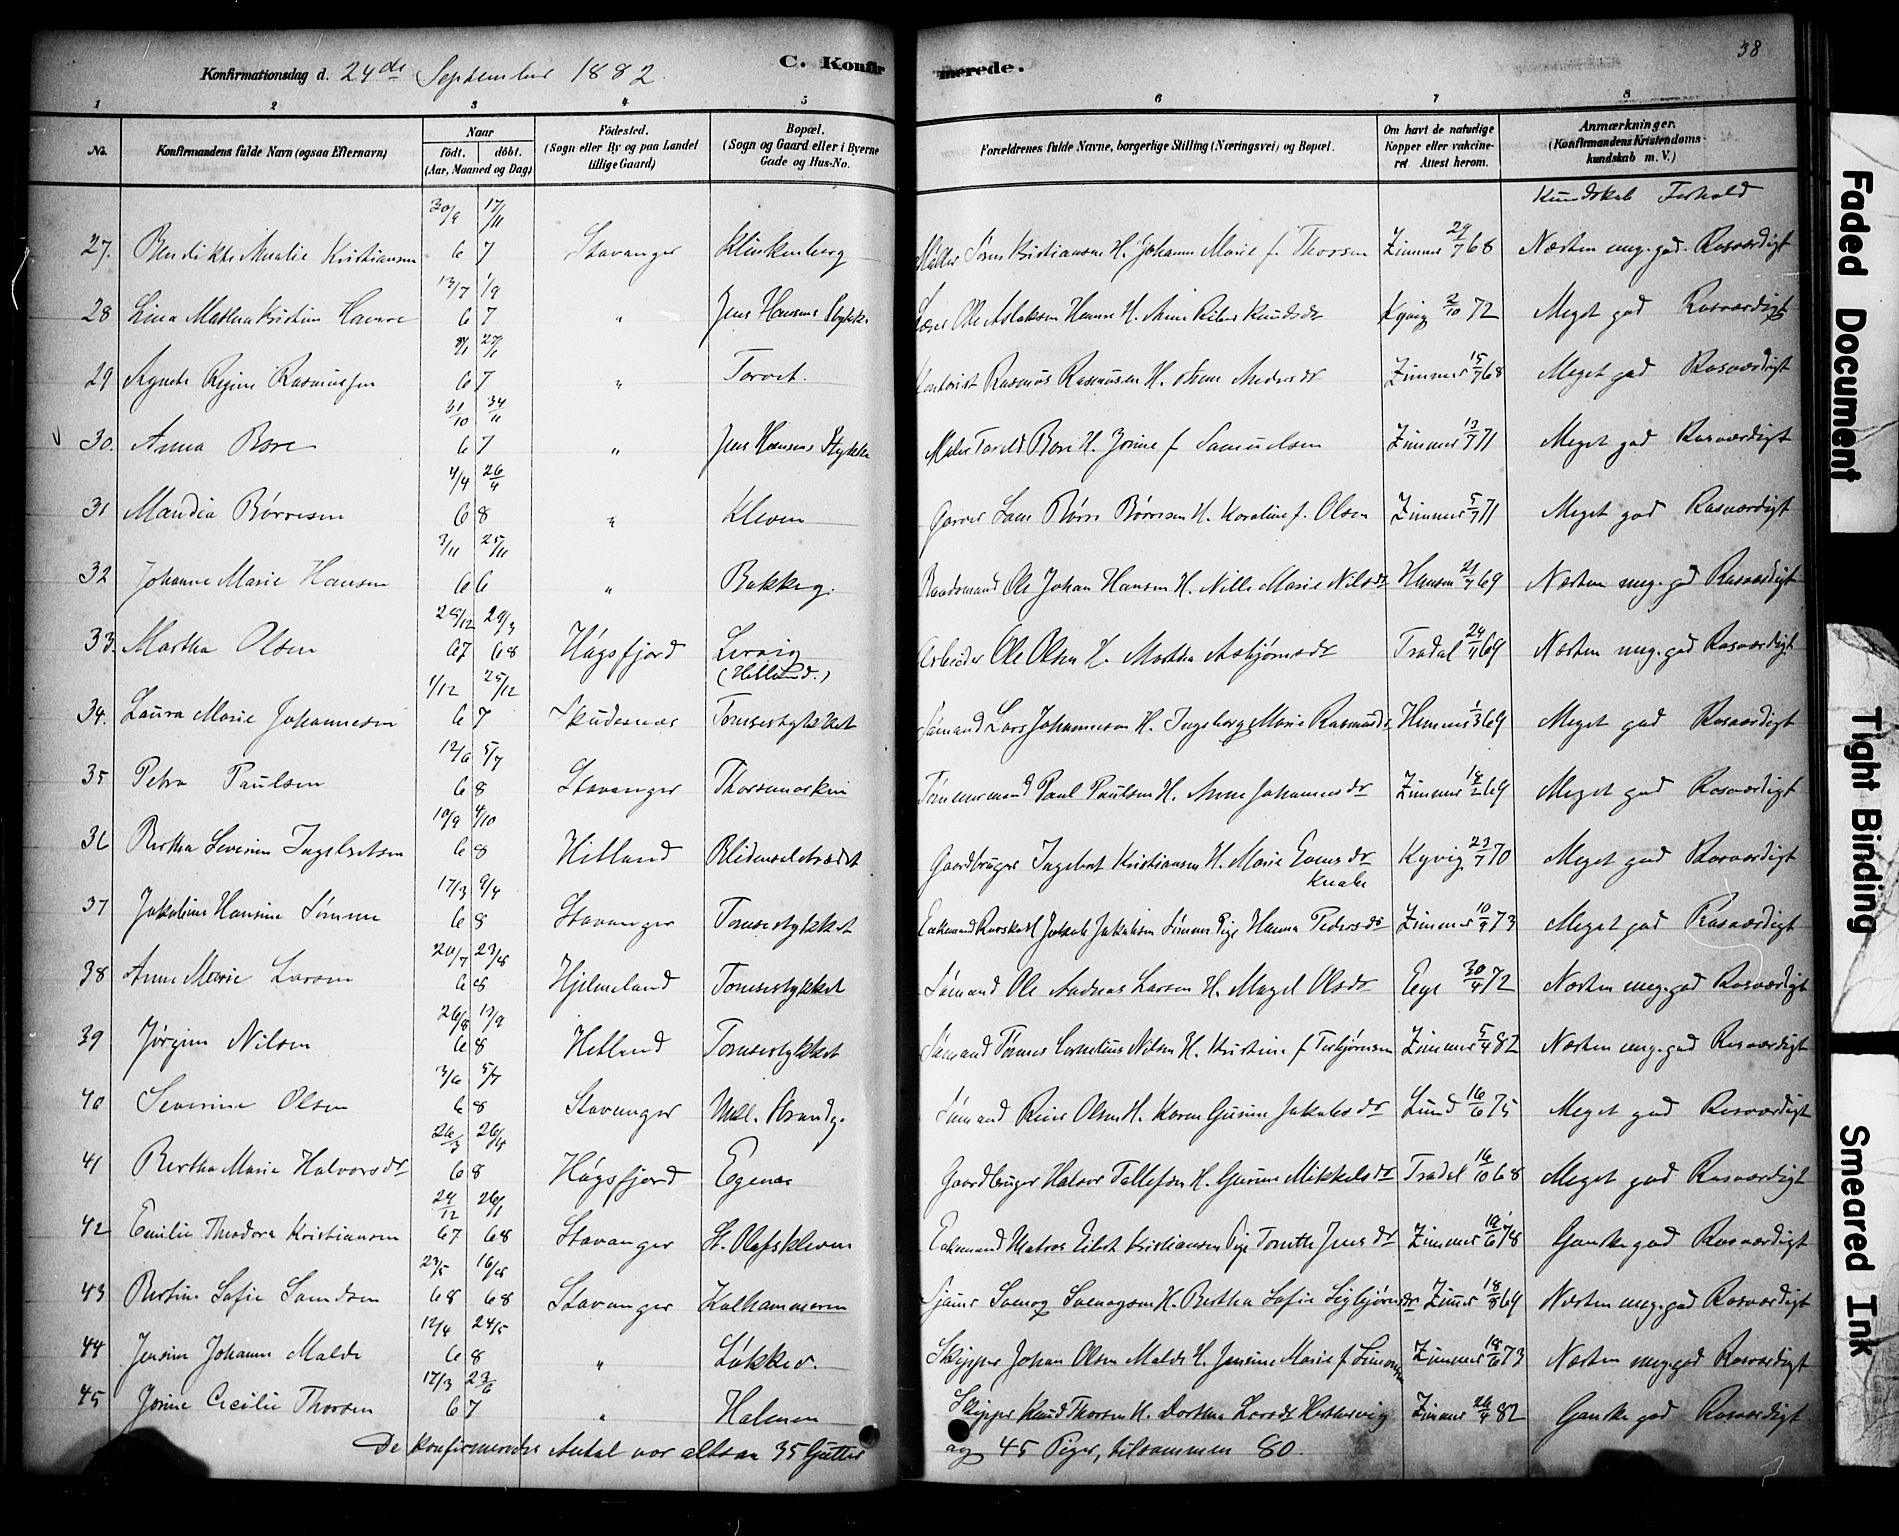 38
Konfirmationsdag d. 24de September 1882.
C. Konfirmerede.
1 2 3 4 5 6 7 8
No.
Konfirmandens fulde Navn (ogsaa Efternavn)
Naar
født. døbt.
(Aar, Maaned og Dag)
Fødested.
(Sogn eller By og paa Landet
tillige Gaard)
Bopæl.
(Sogn og Gaard eller i Byerne
Gade og Hus-No.
Forældrenes fulde Navne, borgerlige Stilling (Næringsvei) og Bopæl.
Om havt de naturlige
Kopper eller vakcine-
ret. Attest herom.
Anmærkninger.
(Konfirmandens Kristendoms-
kundskab m. V.)
Kundskab Forhold
30/9 17/11
27. Bendikte Amalie Kristiansen 6 7 Stavanger Klinkenberg Møller Søren Kristiansen H. Johanne Marie f. Thorsen Zimmer 29/7 68 Næsten meg. god. Rosværdigt
13/7 1/9
28 Lina Mathea Kristine Hamre 6 7 " Jens Hansens Stykke Ole Aslaksen Hamre H. Knudsdr Kyvig 2/10 72 Meget god Rosværdigt
29 Agnete Regine Rasmussen 6 7 " Torvet. Kontorist Rasmus Rasmussen H. Anne Andersdr Zimmer 15/7 68 Meget god Rosværdigt
31/10 34/11
30. Anna Bore 6 7 " Jens Hansens Stykke Maler Bore H. Jorine f. Samuelsen Zimmer 13/7 71 Meget god Rosværdigt
4/4 26/4
31 Mandia Børresen 6 8 " Kleven Garver Børresen H. Karoline f. Olsen Zimmer 5/7 71 Meget god Rosværdigt
3/11 25/11
32 Johanne Marie Hansen 6 6 " Bakkeg. Baadsmand Ole Johan Hansen H. Nille Marie Nilsdr Hansen 21/7 69 Næsten meg. god Rosværdigt
25/12 29/3
33. Martha Olsen 67 68 Høgsfjord Lervig (Hetland.) Arbeider Ole Olsen H. Martha Asbjørnsdr Tradal 24/11 69 Næsten meg. god Rosværdigt
1/12 25/12
34. Laura Marie Johannesen 6 7 Skudesnæs Tomsestykket Sømand Lars Johannesen H. Ingeborg Marie Rasmusdr 1/3 69 Meget god Rosværdigt
12/6 5/7
35 Petra Paulsen 6 8 Stavanger Thorsemarken Tømmermand Paul Paulsen H. Anne Johannesdr Zimmer 18/2 69 Meget god Rosværdigt
10/9 4/10
36 Bertha Severine Ingebretsen 6 8 Hetland Blidenselstrædet Gaardbruger Ingebret Kristiansen H. Marie Evensdr Kyvig 23/7 70 Meget god Rosværdigt
17/3 9/4
37 Jakobine Hansine Sømme 6 8 Stavanger Tomsestykket Enkemand Jakob Jakobsen Sømme Pige Hanna Pedersdr Zimmer 10/9 73 Meget god Rosværdigt
20/7 23/8
38 Anne Marie Larsen 6 8 Hjelmeland Tomsestykket Sømand Ole Andreas Larsen H. Magel Olsdr Eege 30/4 72 Næsten meg. god Rosværdigt
26/8 13/9
39 Jørgine Nilsen 6 8 Hetland Tomsestykket Sømand Tønnes Cornelius Nilsen H. Kristine f. Torbjørnsen Zimmer 5/4 82 Næsten meg. god Rosværdigt
3/6 5/7
40 Severine Olsen 6 8 Stavanger Nedl. Strandg. Sømand Reier Olsen H. Karen Gurine Jakobsdr Lund 16/6 75 Meget god Rosværdigt
26/3
41 Bertha Marie Halvorsdr 6 8 Høgsfjord Egenæs Gaardbruger Halvor Tollefsen H. Gurine Mikkelsdr Tradal 16/10 68 Meget god Rosværdigt
24/12 26/1
42 Emilie Theodora Kristiansen 67 68 Stavanger St. Olafskleven Enkemand Matros Eilert Kristiansen Pige Jensdr Zimmer Ganske god Rosværdigt
23/5 16/8
43 Bertine Sofie 68 68 Stavanger Kalhammeren H. Bertha Sofie Sigbjørnsdr Zimmer 18/8 69 Næsten meg. god Rosværdigt
12/4 24/5
44 Jensine Johanne Malde 6 8 " Løkkev. Skipper Johan Olsen Malde H. Jensine Marie f. Simonsen Zimmer 18/6 73 Næsten meg. god Rosværdigt
17/3 23/6
45 Jorine Cecilie Thorsen 6 7 " Holmen Skipper Knud Thorsen H. Dorthea Larsdr Zimmer 26/4 82 Ganske god Rosværdigt
De konfirmeredes Antal var altsaa 35 Gutter og 45 Piger, tilsammen 80.
Faded Document
Tight Binding
Smeared Ink